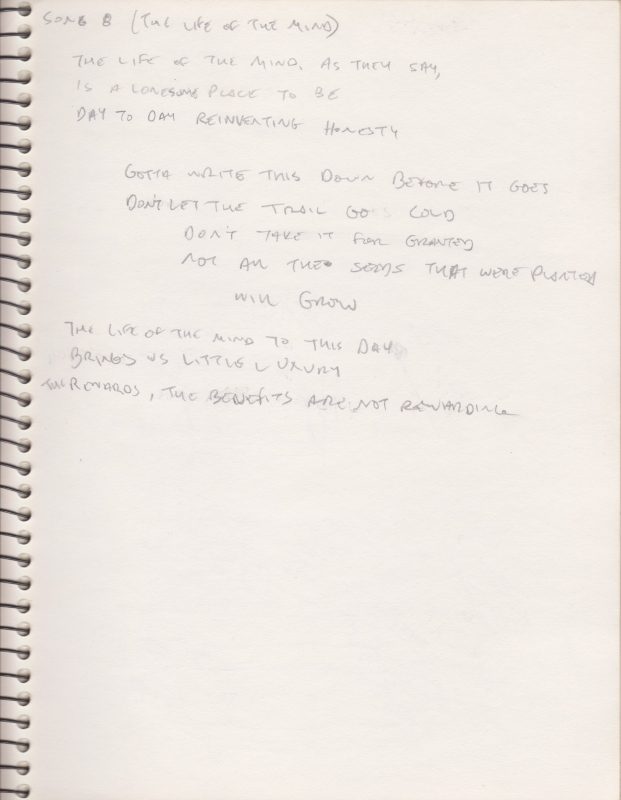 SONG 8 (THE LIFE OF THE MIND)
THE LIFE OF THE MIND, AS THEY SAY,
IS A LONESOME PLACE TO BE
DAY TO DAY REINVENTING HONESTY
GOTTA WRITE THIS DOWN BEFORE IT GOES
DON'T LET THE TRAIL GO COLD
DON'T TAKE IT FOR GRANTED
NOT ALL THE SEEDS THAT WERE PLANTED
WILL GROW
THE LIFE OF THE MIND TO THIS DAY
BRINGS US LITTLE LUXURY
THE REWARDS, THE BENEFITS ARE NOT REWARDING